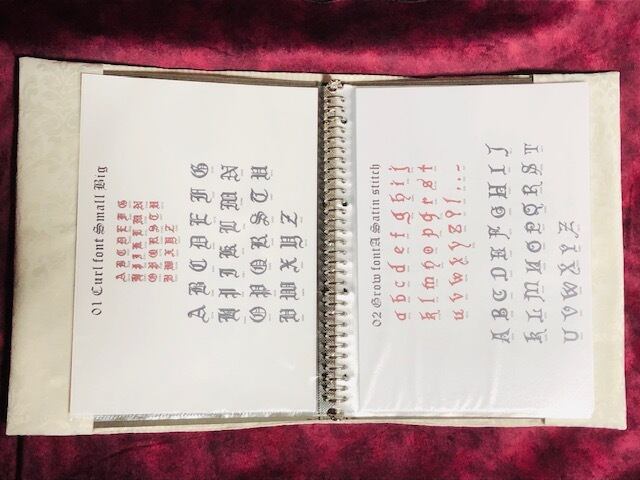 01 Curl font Small Big
A B C D E F G
H I J K L M N
O P Q R S T U
V W X Y Z
A B C D E F G
H I J K L M N
O P Q R S T U
V W X Y Z
02 Grow fontA Satin stitch
a b c d e f g h i j
k l m n o p q r s t
u v w x y z ? ! , . -
A B C D E F G H I J
K L M N O P Q R S T
U V W X Y Z